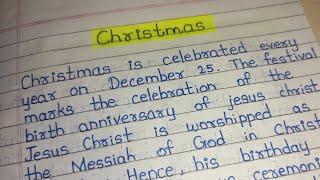 Christmas
Christmas is celebrated every
year on December 25. The festival
marks the celebration of the
birth anniversary of jesus christ.
Jesus Christ is worshipped as
the Messiah of God in Christ
Hence, his birthday
ceremoni